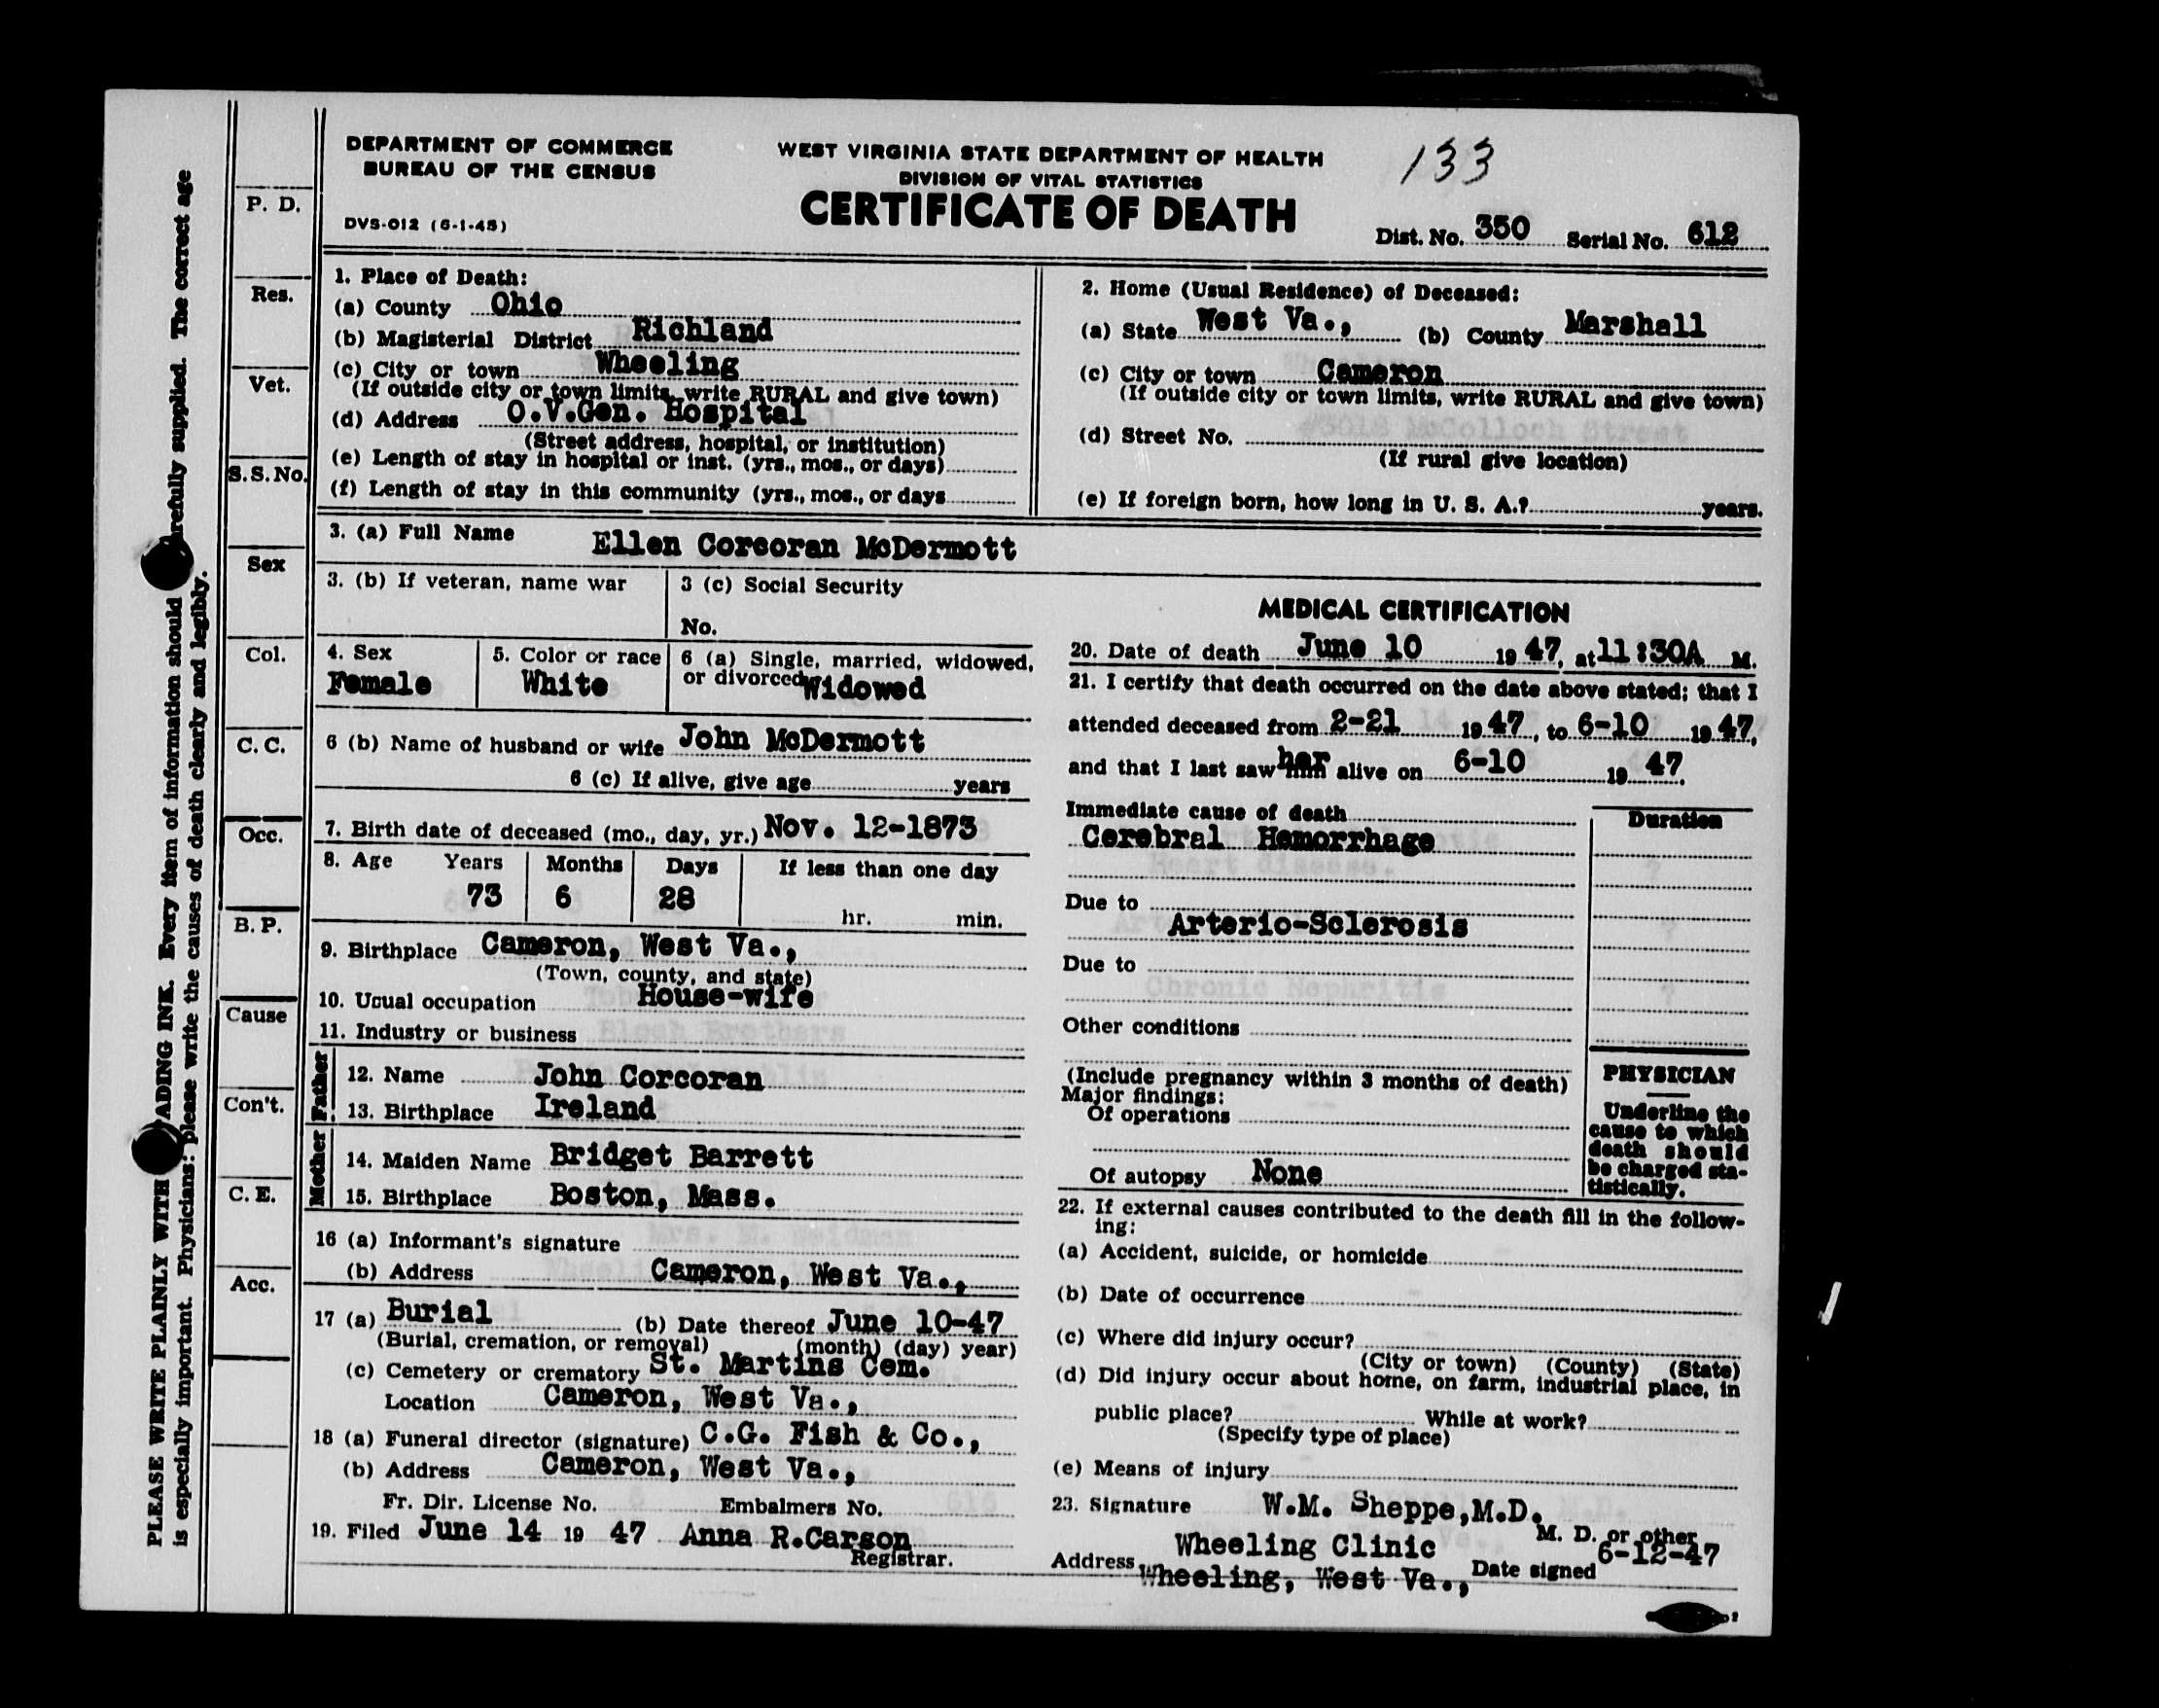 DEPARTMENT OF COMMERCE
BUREAU OF THE CENSUS
DVS-012 (6-1-45)
WEST VIRGINIA STATE DEPARTMENT OF HEALTH
DIVISION OF VITAL STATISTICS
CERTIFICATE OF DEATH
133
Dist. No. 350 Serial No. 612
PLEASE WRITE PLAINLY WITH ADING INK. Every item of information should arefully supplied. The correct age
is especially important. Physicians: please write the causes of death clearly and legibly.
P. D.
Res.
Vet.
S.S.No.
Sex
Col.
C. C.
Occ.
B. P.
Cause
Con't.
C. E.
Acc.
1. Place of Death:
(a) County Ohio
(b) Magisterial District Richland
(c) City or town Wheeling
(If outside city or town limits, write RURAL and give town)
(d) Address O.V.Gen. Hospital
(Street address, hospital, or institution)
(e) Length of stay in hospital or inst. (yrs., mos., or days)
(f) Length of stay in this community (yrs., mos., or days
2. Home (Usual Residence) of Deceased:
(a) State West Va., (b) County Marshall
(c) City or town Cameron
(If outside city or town limits, write RURAL and give town)
(d) Street No.
(If rural give location)
(e) If foreign born, how long in U. S. A.? years.
3. (a) Full Name Ellen Corcoran McDermott
3. (b) If veteran, name war
3 (c) Social Security
No.
4. Sex
Female
5. Color or race
White
6 (a) Single, married, widowed,
or divorced Widowed
6 (b) Name of husband or wife John McDermott
6 (c) If alive, give age years
7. Birth date of deceased (mo., day, yr.) Nov. 12-1873
8. Age Years Months Days If less than one day
73 6 28 hr. min.
9. Birthplace Cameron, West Va.,
(Town, county, and state)
10. Usual occupation House-wife
11. Industry or business
Father
12. Name John Corcoran
13. Birthplace Ireland
Mother
14. Maiden Name Bridget Barrett
15. Birthplace Boston, Mass.
16 (a) Informant's signature
(b) Address Cameron, West Va.,
17 (a) Burial (b) Date thereof June 10-47
(Burial, cremation, or removal) (month) (day) year)
(c) Cemetery or crematory St. Martins Cem.
Location Cameron, West Va.,
18 (a) Funeral director (signature) C.G. Fish & Co.,
(b) Address Cameron, West Va.,
Fr. Dir. License No. Embalmers No.
19. Filed June 14 19 47 Anna R.Carson
Registrar.
MEDICAL CERTIFICATION
20. Date of death June 10 19 47, at 11:30A M.
21. I certify that death occurred on the date above stated; that I
attended deceased from 2-21 19 47, to 6-10 19 47,
and that I last saw her him alive on 6-10 19 47.
Immediate cause of death Duration
Cerebral Hemorrhage
Due to
Arterio-Sclerosis
Due to
Other conditions
(Include pregnancy within 3 months of death)
Major findings:
Of operations
Of autopsy None
PHYSICIAN
Underline the
cause to which
death should
be charged sta-
tistically.
22. If external causes contributed to the death fill in the follow-
ing:
(a) Accident, suicide, or homicide
(b) Date of occurrence
(c) Where did injury occur?
(City or town) (County) (State)
(d) Did injury occur about home, on farm, industrial place, in
public place? While at work?
(Specify type of place)
(e) Means of injury
23. Signature W.M. Sheppe,M.D.
M. D. or other
Address Wheeling Clinic
Wheeling, West Va., Date signed 6-12-47